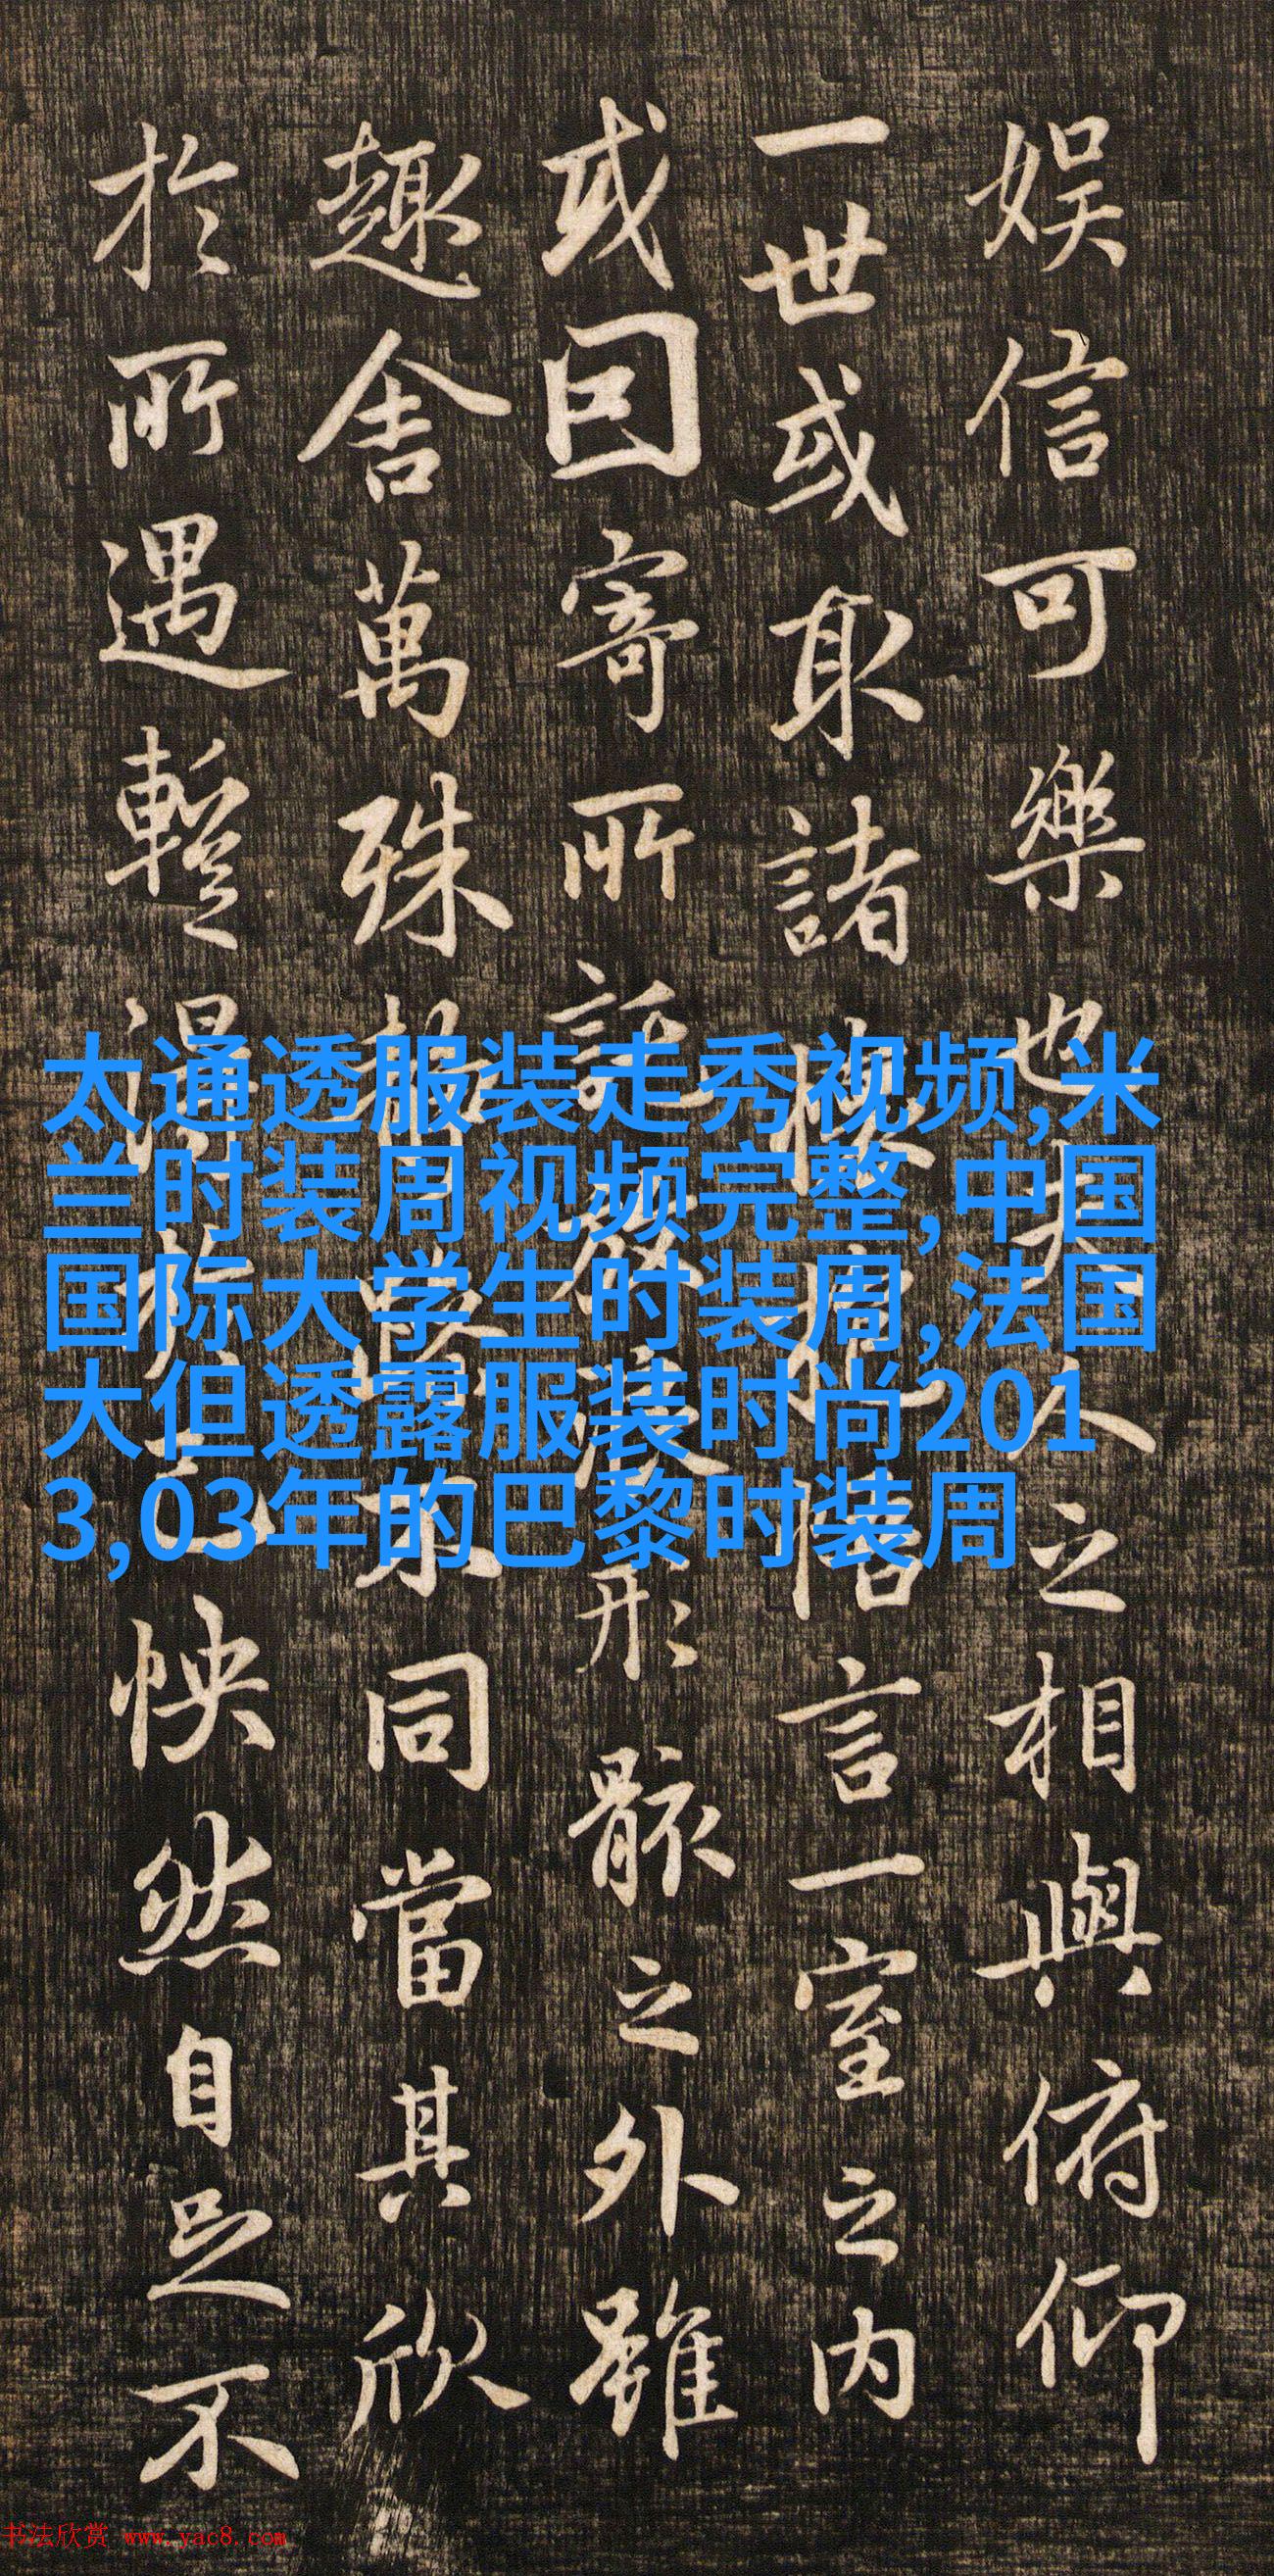 娛信可樂也夫人之相與俯仰
一世或取諸懷抱悟言一室之内
或因寄所託放浪形骸之外雖
趣舍萬殊靜躁不同當其欣
於所遇暫得於己怏然自足不
太通透服装走秀视频,米
兰时装周视频完整,中国
国际大学生时装周,法国
大但透露服装时尚201
3,03年的巴黎时装周
书法欣赏 www.yac8.com